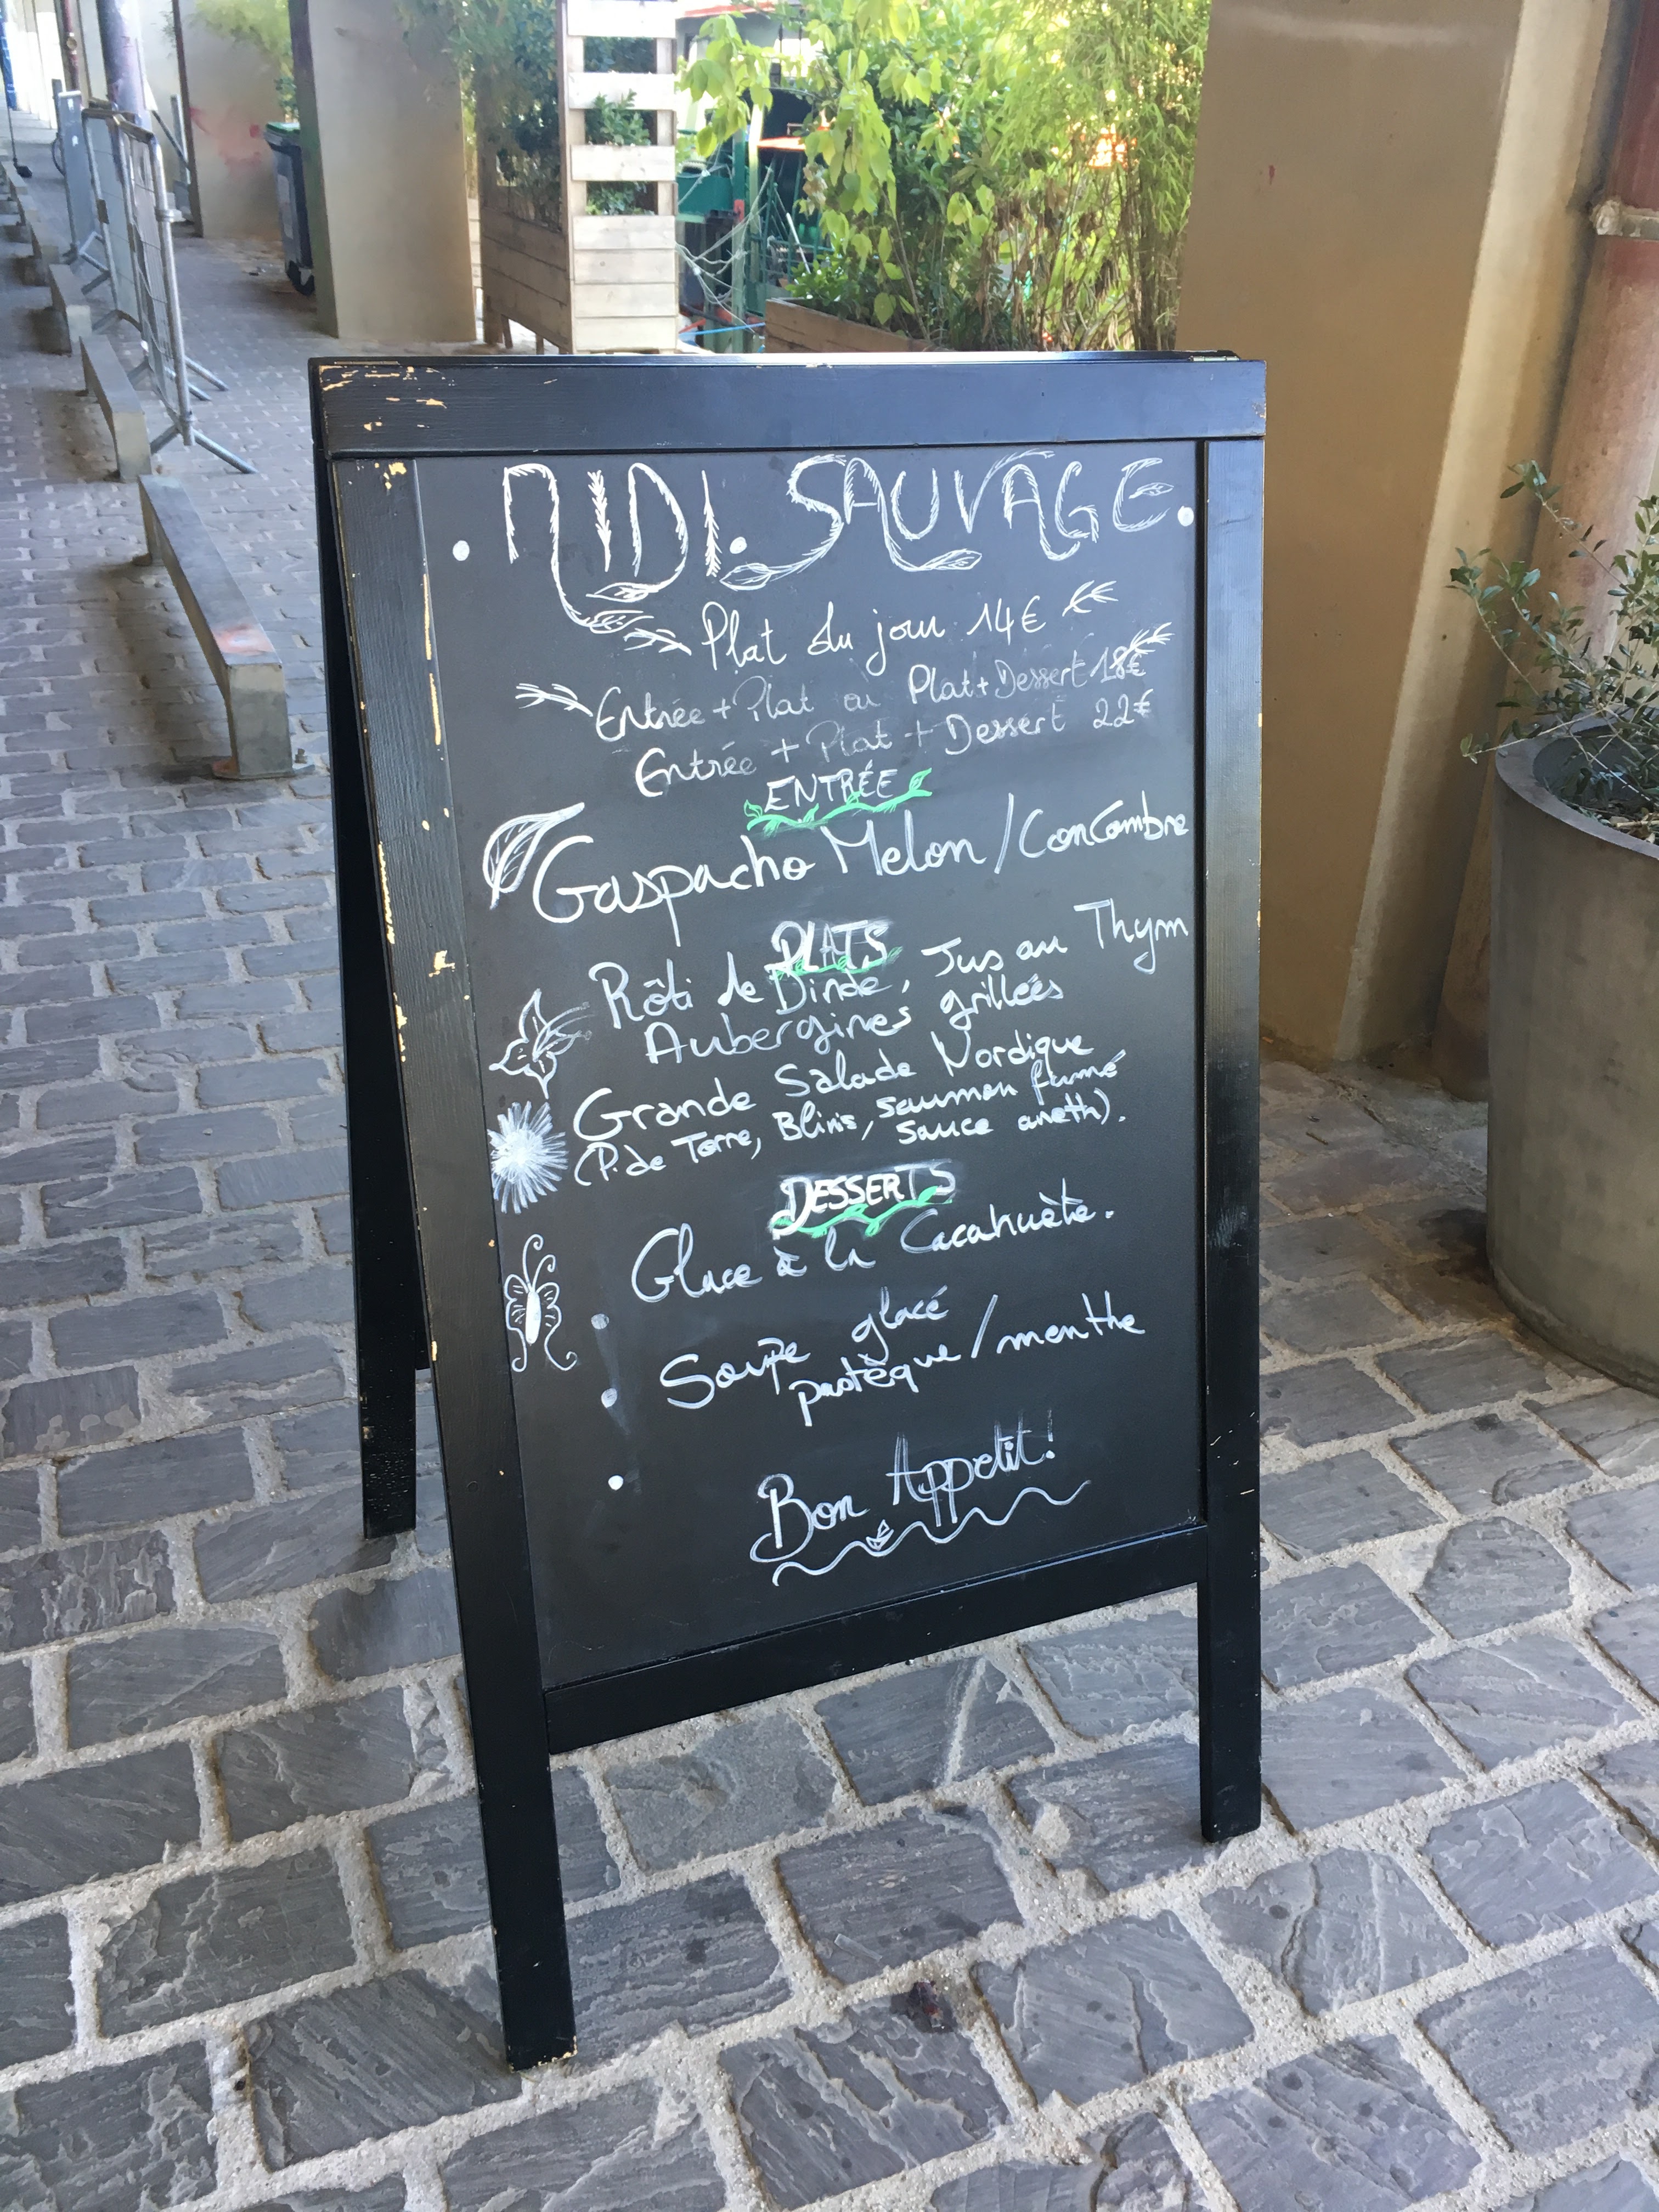 MIDI. SAUVAGE.
Plat du jour 14€
Entrée + Plat ou Plat + Dessert 18€
Entrée + Plat + Dessert 22€
ENTRÉE
Gaspacho Melon / Concombre
PLATS
Rôti de Dinde, Jus au Thym
Aubergines grillées
Grande Salade Nordique
(P. de Terre, Blinis, saumon fumé
sauce aneth).
DESSERTS
Glace à la Cacahuète.
Soupe glacé
pastèque / menthe
Bon Appetit!